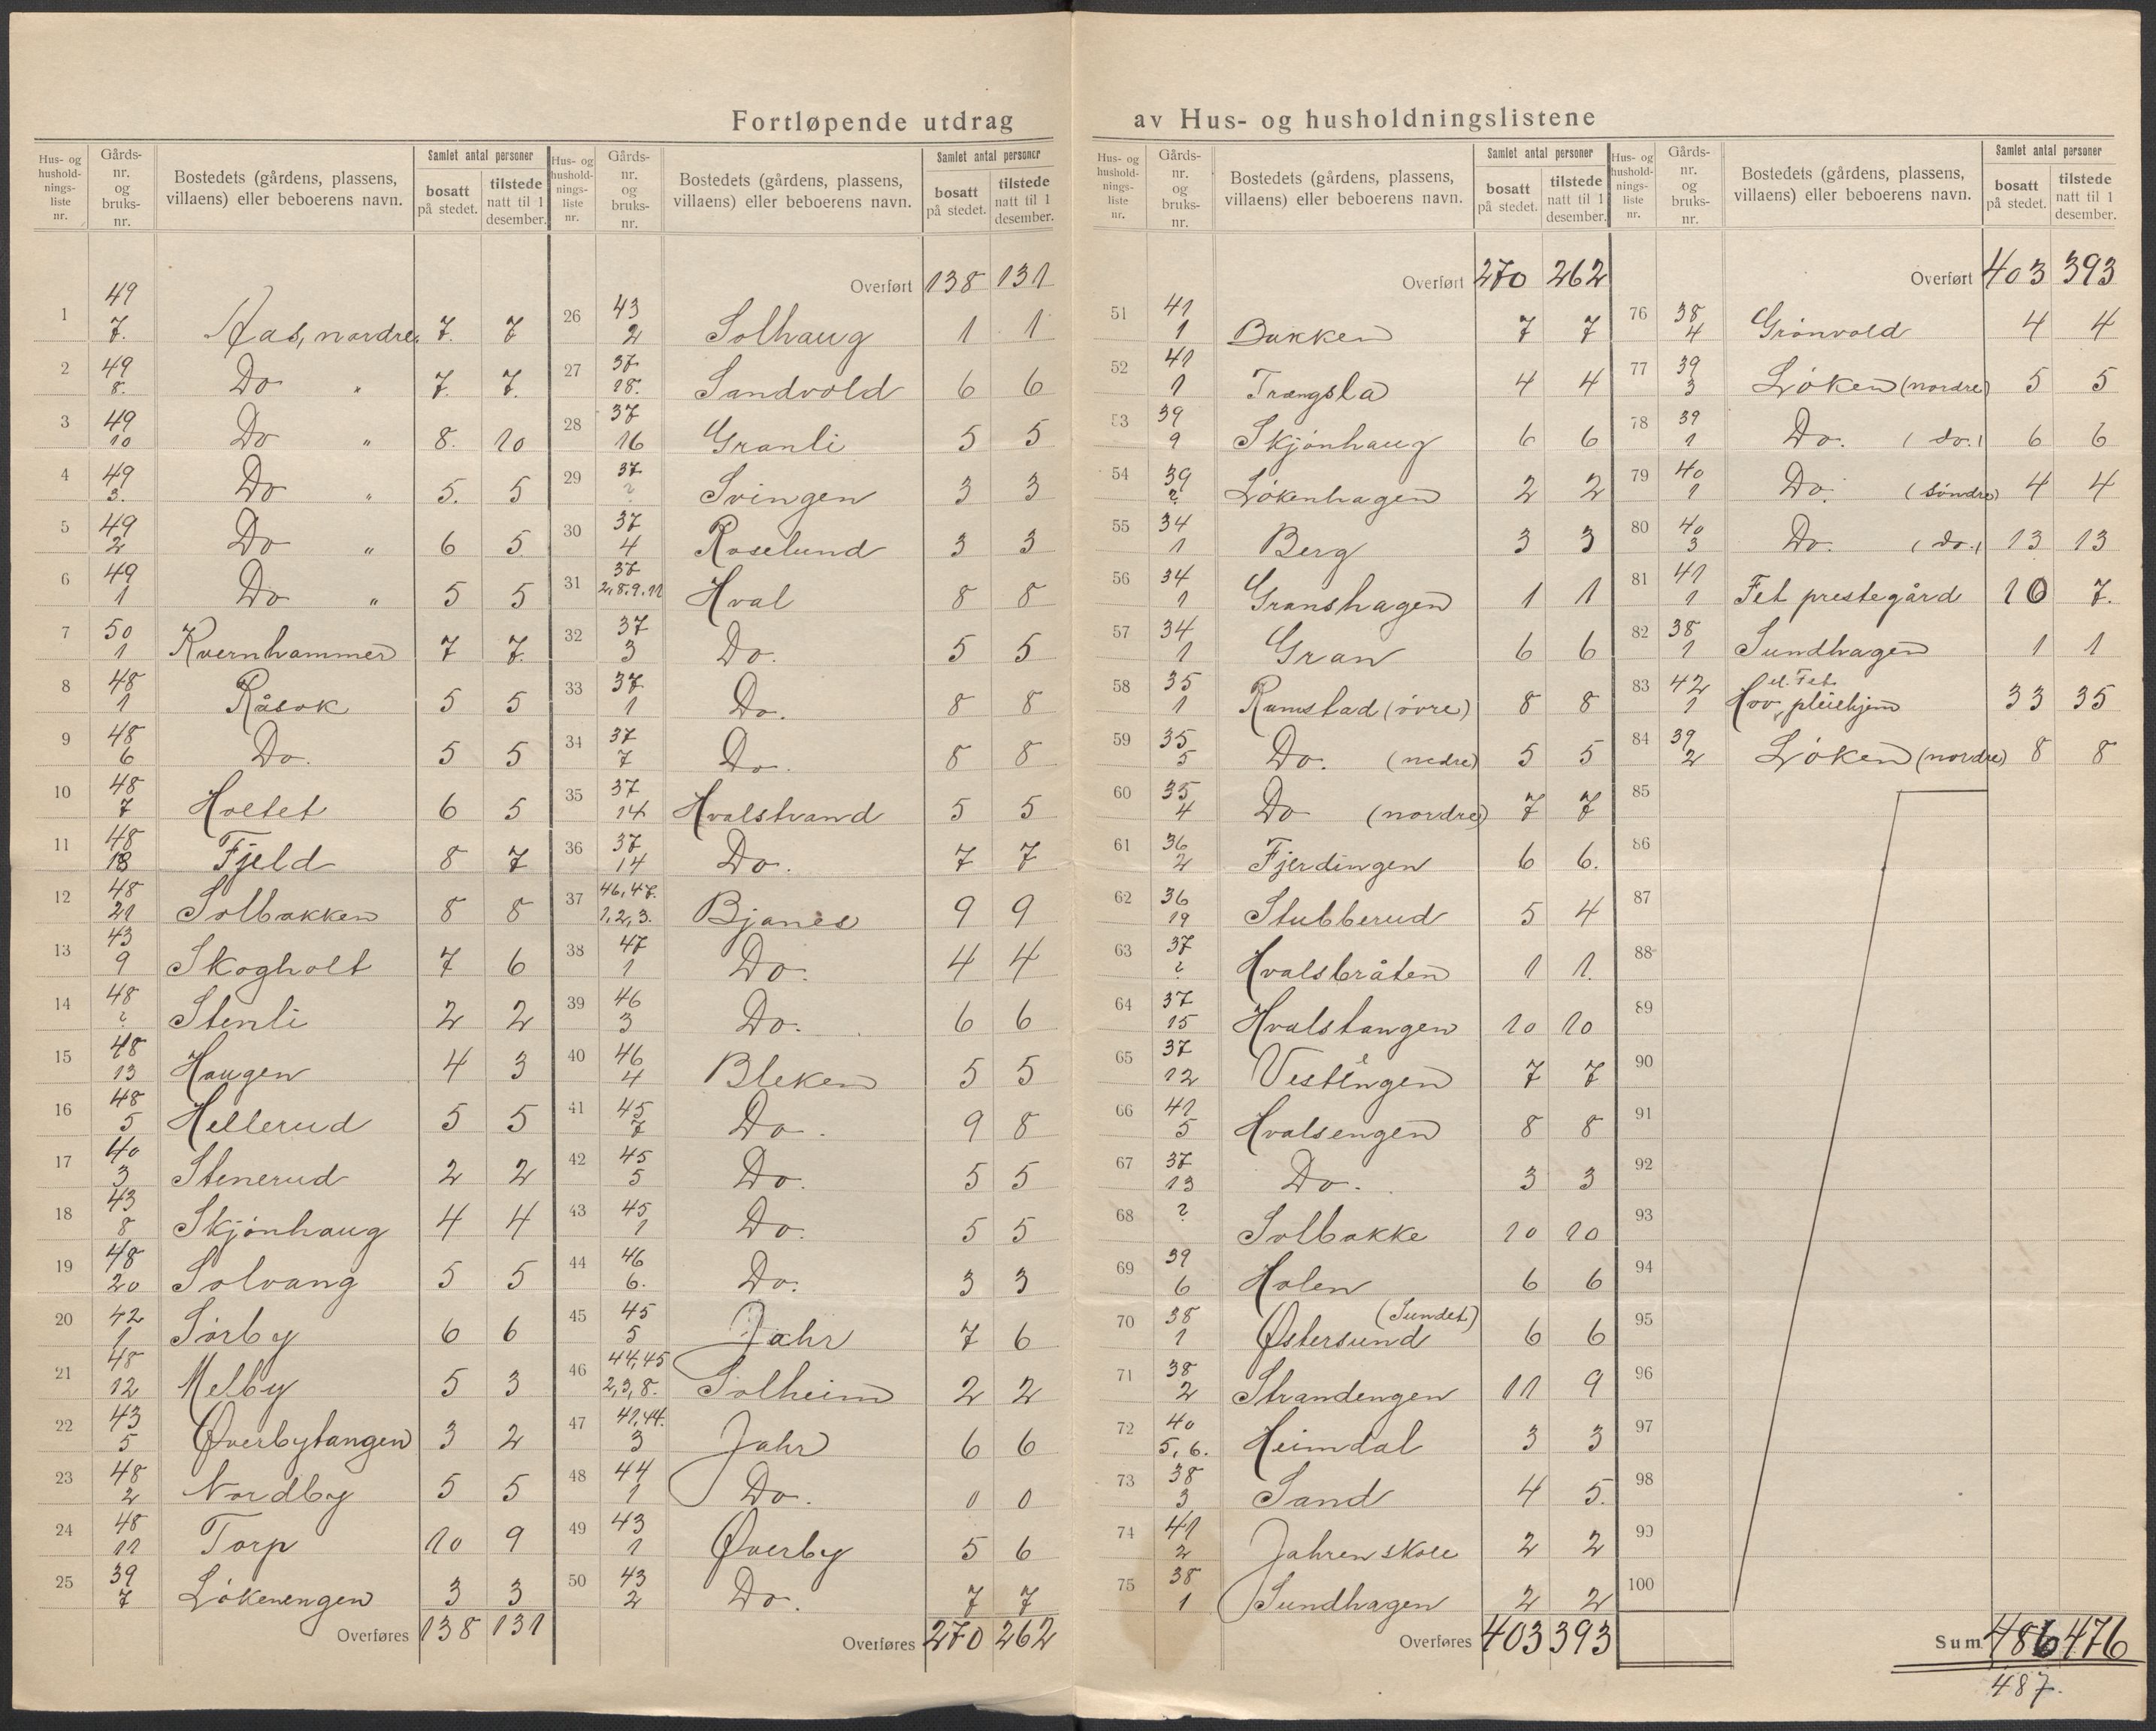 Fortløpende utdrag av Hus- og husholdningslistene
Hus- og husholdnings-liste nr. Gårds-nr. og bruks-nr. Bostedets (gårdens, plassens, villaens) eller beboerens navn. Samlet antal personer bosatt på stedet. tilstede natt til 1 desember.
1 49 7. Aas, nordre. 7. 7
2 49 8. Do " 7. 7.
3 49 10 Do " 8. 10
4 49 3. Do " 5. 5
5 49 2 Do " 6 5
6 49 1 Do " 5 5
7 50 1 Kvernhammer 7 7.
8 48 1 Råsok 5 5
9 48 6 Do. 5 5
10 48 7 Holtet 6 5
11 48 18 Fjeld 8 7
12 48 21 Solbakken 8 8
13 43 9 Skogholt 7 6
14 48 ? Stenli 2 2
15 48 13 Haugen 4 3
16 48 5 Hellerud 5 5
17 40 3 Stenerud 2 2
18 43 8 Skjönhaug 4 4
19 48 20 Solvang 5 5
20 42 1 Sörby 6 6
21 48 12 Melby 5 3
22 43 5 Øverbytangen 3 2
23 48 2 Nordby 5 5
24 48 11 Torp 10 9
25 39 7 Lökenengen 3 3
Overføres 138 131
Hus- og husholdnings-liste nr. Gårds-nr. og bruks-nr. Bostedets (gårdens, plassens, villaens) eller beboerens navn. Samlet antal personer bosatt på stedet. tilstede natt til 1 desember.
Overført 138 131
26 43 2 Solhaug 1 1
27 37 18. Sandvold 6 6
28 37 16 Granli 5 5
29 37 ? Svingen 3 3
30 37 4 Roselund 3 3
31 37 2,8.9.11 Hval 8 8
32 37 3 Do. 5 5
33 37 1 Do. 8 8
34 37 7 Do. 8 8
35 37 14 Hvalstrand 5 5
36 37 14 Do. 7 7
37 46,47. 1,2,3. Bjanes 9 9
38 47 1 Do. 4 4
39 46 3 Do. 6 6
40 46 4 Bleken 5 5
41 45 7 Do. 9 8
42 45 5 Do. 5 5
43 45 1 Do. 5 5
44 46 6. Do. 3 3
45 45 5 Jahr 7 6
46 44,45 2,3,8. Solheim 2 2
47 41,44. 3 Jahr 6 6
48 44 1 Do. 0 0
49 43 1 Øverby 5 6
50 43 2 Do. 7 7
Overføres 270 262
Hus- og husholdnings-liste nr. Gårds-nr. og bruks-nr. Bostedets (gårdens, plassens, villaens) eller beboerens navn. Samlet antal personer bosatt på stedet. tilstede natt til 1 desember.
Overført 270 262
51 41 1 Bakken 7 7
52 41 1 Trængsla 4 4
53 39 9 Skjönhaug 6 6
54 39 ? Lökenhagen 2 2
55 34 1 Berg 3 3
56 34 1 Granshagen 1 1
57 34 1 Gran 6 6
58 35 1 Ramstad (övre) 8 8
59 35 5 Do. (nedre) 5 5
60 35 4 Do (nordre) 7 7
61 36 2 Fjerdingen 6 6.
62 36 19 Stubberud 5 4
63 37 ? Hvalsbråten 1 1.
64 37 15 Hvalstangen 10 10
65 37 12 Vestengen 7 7
66 41 5 Hvalsengen 8 8
67 37 13 Do. 3 3
68 ? Solbakke 10 10
69 39 6 Holen 6 6
70 38 1 Østersund (Sundet) 6 6
71 38 2 Strandengen 11 9
72 40 5,6. Heimdal 3 3
73 38 3 Sand 4 5.
74 41 2 Jahren skole 2 2
75 38 1 Sundhagen 2 2
Overføres 403 393
Hus- og husholdnings-liste nr. Gårds-nr. og bruks-nr. Bostedets (gårdens, plassens, villaens) eller beboerens navn. Samlet antal personer bosatt på stedet. tilstede natt til 1 desember.
Overført 403 393
76 38 4 Grönvold 4 4
77 39 3 Löken (nordre) 5 5
78 39 1 Do. (do.) 6 6
79 40 1 Do. (söndre) 4 4
80 40 3 Do. (do.) 13 13
81 41 1 Fet prestegård 10 7.
82 38 1 Sundhagen 1 1
83 42 1 Hov el. Fet pleiehjem 33 35
84 39 2 Löken (nordre) 8 8
85
86
87
88
89
90
91
92
93
94
95
96
97
98
99
100
Sum 486 476
487.